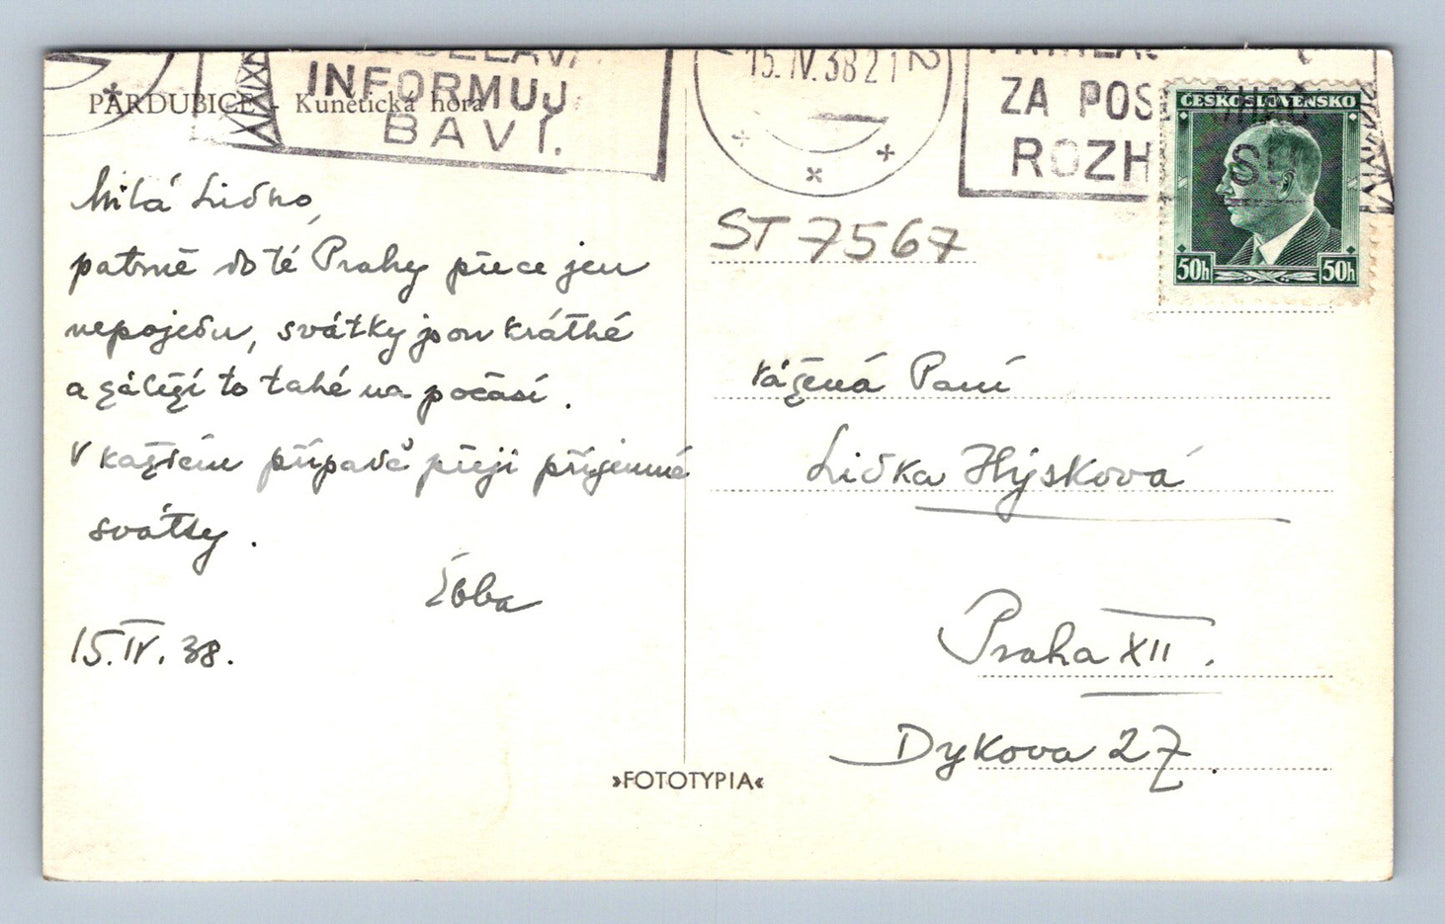 VZDĚLÁVÁ
INFORMUJE
BAVÍ.
15.IV.38 21
2
ZA POS
ROZH
PARDUBICE - Kunětická hora
ČESKOSLOVENSKO
50h 50h
Milá Lidko,
patrně do té Prahy přece jen
nepojedu, svátky jsou krátké
a záleží to také na počasí.
V každém případě přeji příjemné
svátky.
15.IV.38.
ST 7567
Vážená Paní
Lidka Hýsková
Praha XII.
Dykova 27.
»FOTOTYPIA«